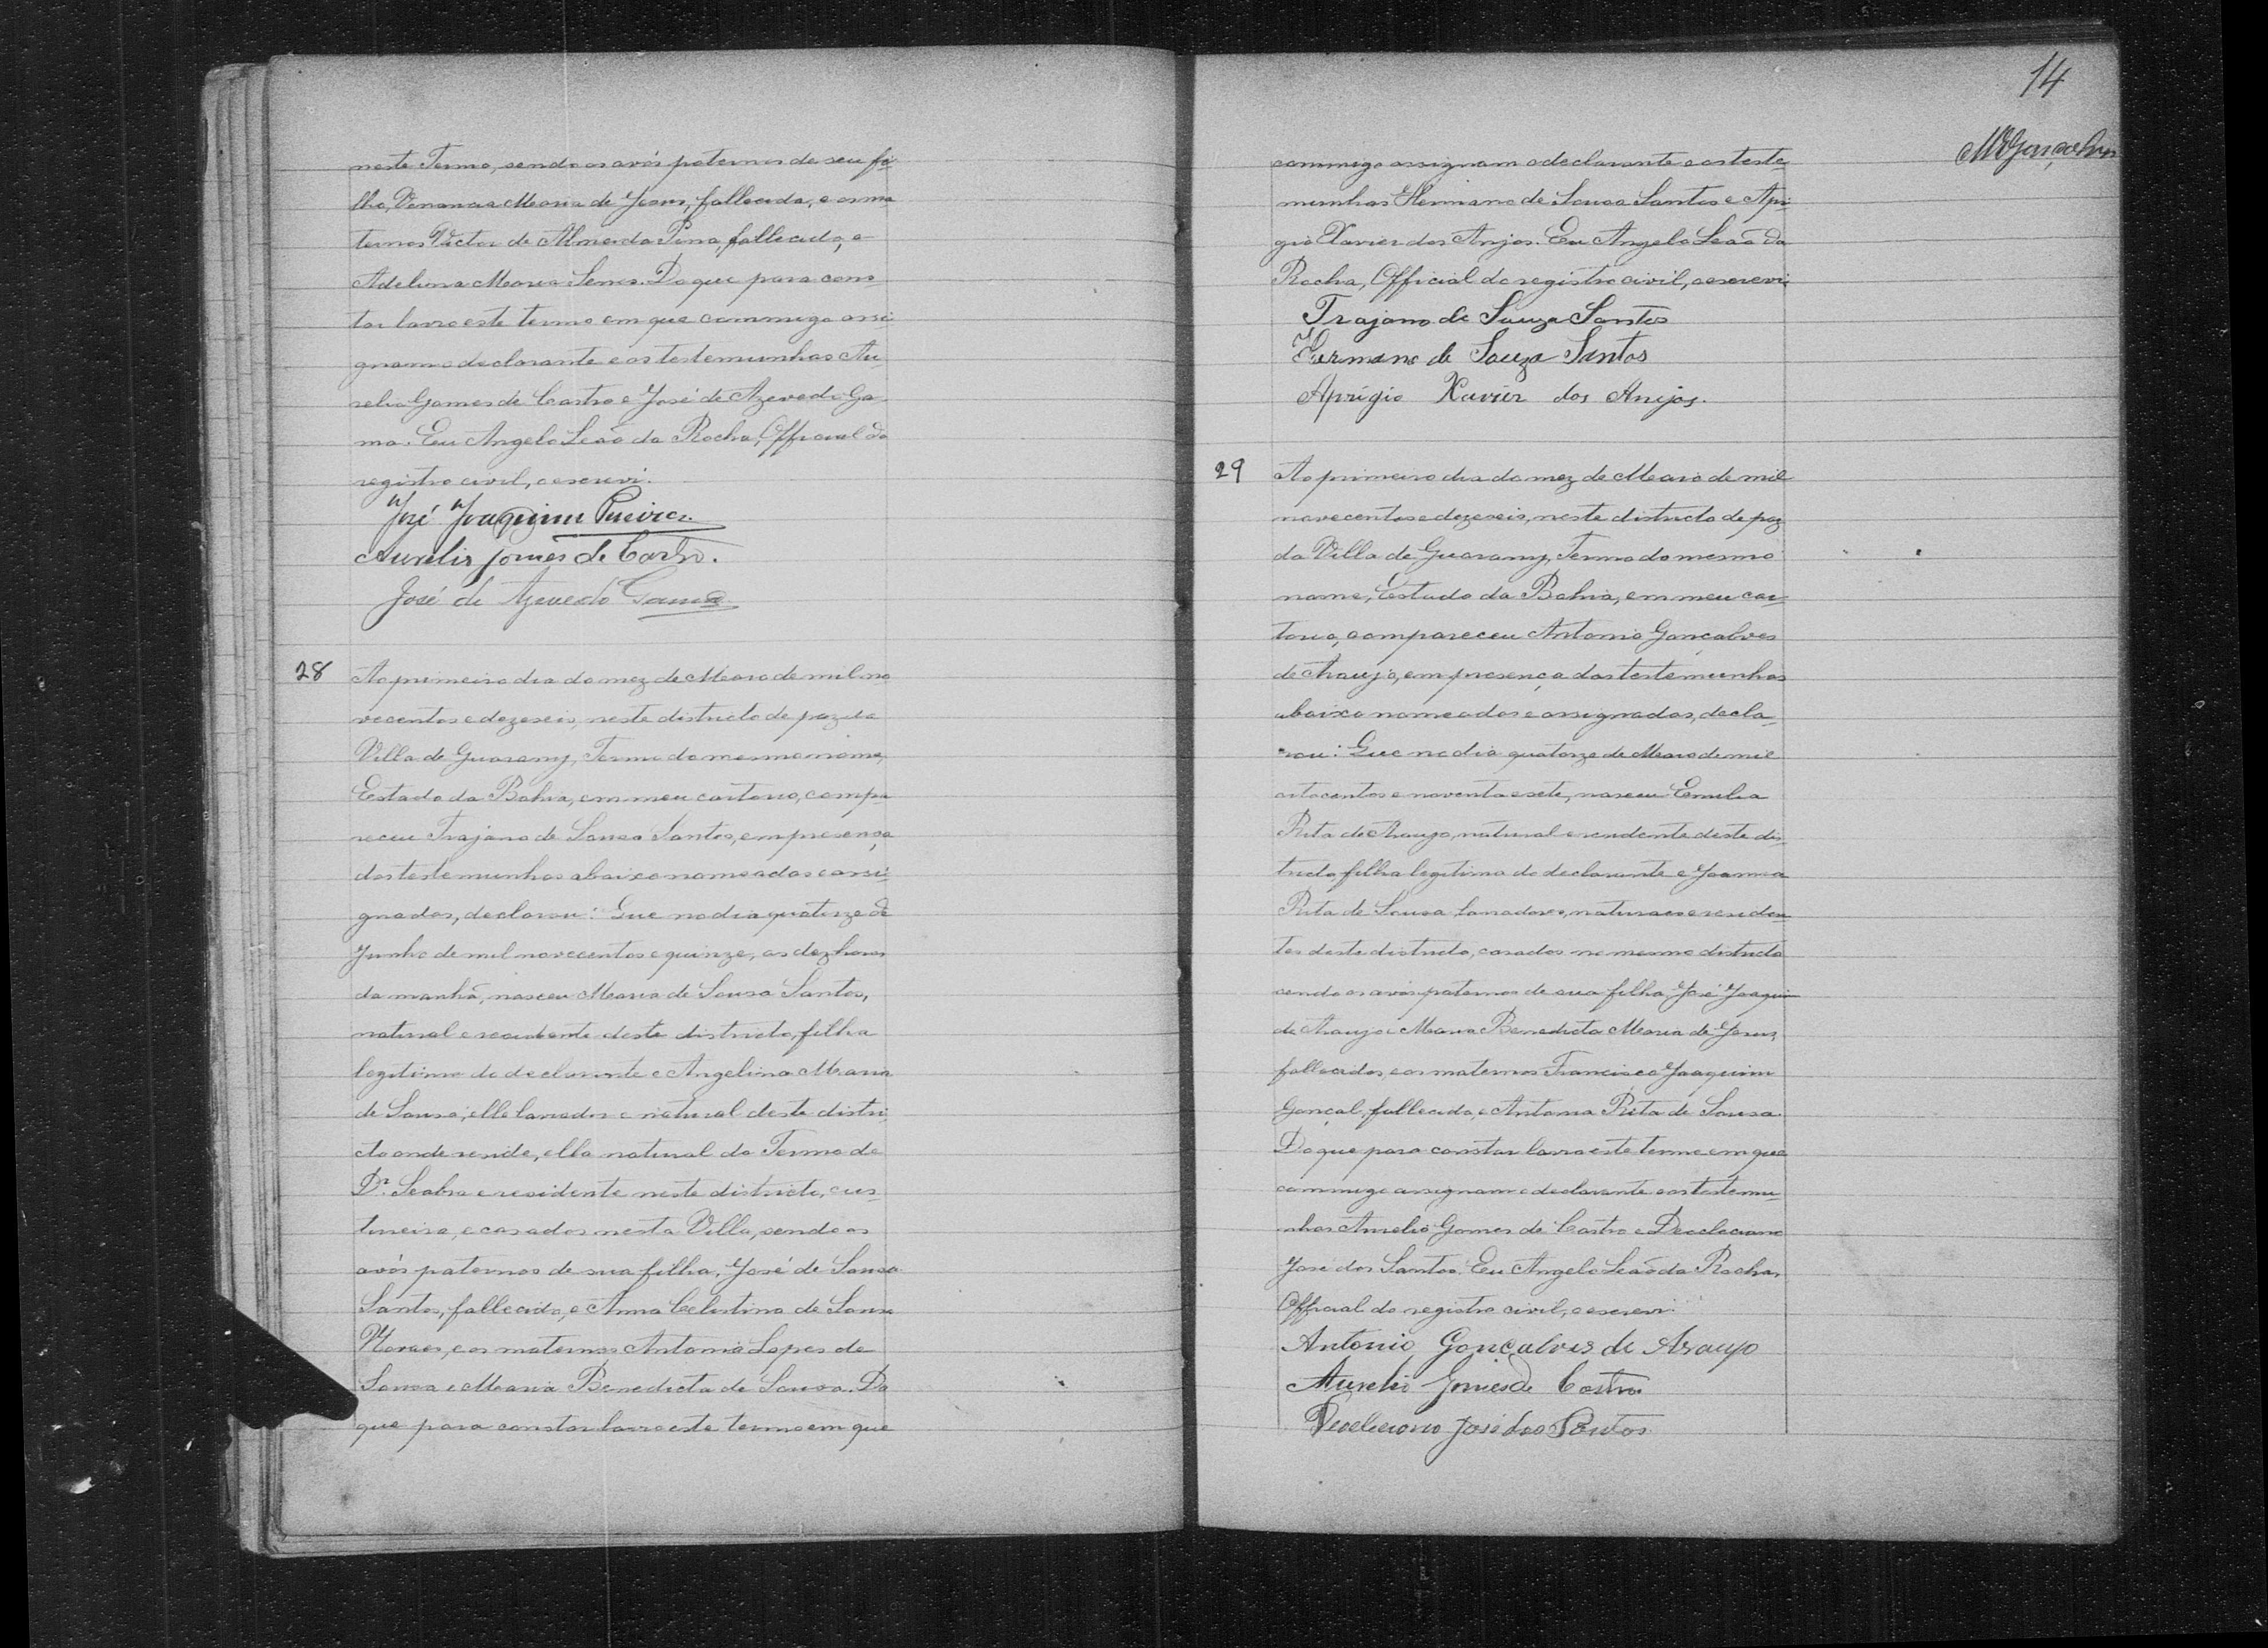 neste Termo, sendo os avós paternos de seu fi-
lho, Venancia Maria de Jesus, fallecida, e os ma
ternos Victor de Almeida Pina, fallecido, e
Adelina Maria Senes. Do que para cons
tar lavro este termo em que commigo assi
gnam o declarante e as testemunhas Au-
relio Gomes de Castro e José de Azevedo Ga
ma. Eu Angelo Leão da Rocha, Official do
registro civil, o escrevi.
José Joaquim
Aurelio Gomes de Castro.
José de Azevedo Gama
28 Ao primeiro dia do mez de Maio de mil no
vecentos e dezeseis, neste districto de paz da
Villa de Guarany, Termo do mesmo nome,
Estado da Bahia, em meu cartorio, compa
receu Trajano de Sousa Santos, em presença
das testemunhas abaixo nomeadas e assi-
gnadas, declarou: Que no dia quatorze de
Junho de mil novecentos e quinze, as dez horas
da manhã, nasceu Maria de Sousa Santos,
natural e residente deste districto, filha
legitima do declarante e Angelina Maria
de Sousa; elle lavrador e natural deste distri-
cto onde reside, ella natural do Termo de
Dr. Seabra e residente neste districto, cos
tureira, e casados nesta Villa, sendo os
avós paternos de sua filha, José de Sousa
Santos, fallecido, e Anna Celestina de Sousa
Novaes, e os maternos Antonio Lopes de
Sousa e Maria Benedicta de Sousa. Do
que para constar lavro este termo em que
14
MGonçalves
commigo assignam o declarante e as teste-
munhas Hermano de Sousa Santos e Apri-
gio Xavier dos Anjos. Eu Angelo Leão da
Rocha, Official do registro civil, o escrevi.
Trajano de Souza Santos
Hermano de Souza Santos
Aprigio Xavier dos Anjos.
29 Ao primeiro dia do mez de Maio de mil
novecentos e dezeseis, neste districto de paz
da Villa de Guarany, Termo do mesmo
nome, Estado da Bahia, em meu car-
torio, compareceu Antonio Gonçalves
de Araujo, em presença das testemunhas
abaixo nomeadas e assignadas, decla-
rou: Que no dia quatorze de Maio de mil
oitocentos e noventa e sete, nasceu Emilia
Rita de Araujo, natural e residente deste dis-
tricto, filha legitima do declarante e Joanna
Rita de Sousa, lavradores, naturaes e residen-
tes deste districto, casados no mesmo districto
sendo os avós paternos de sua filha, José Joaquim
de Araujo e Maria Benedicta Maria de Jesus,
fallecidos, e os maternos Francisco Joaquim
Gonçal, fallecido, e Antonia Rita de Sousa.
Do que para constar lavro este termo em que
commigo assignam o declarante e as testemu-
nhas Aurelio Gomes de Castro e Deocleciano
José dos Santos. Eu Angelo Leão da Rocha,
Official do registro civil, o escrevi.
Antonio Gonçalves de Araujo
Aurelio Gomes de Castro
Deocleciano José dos Santos